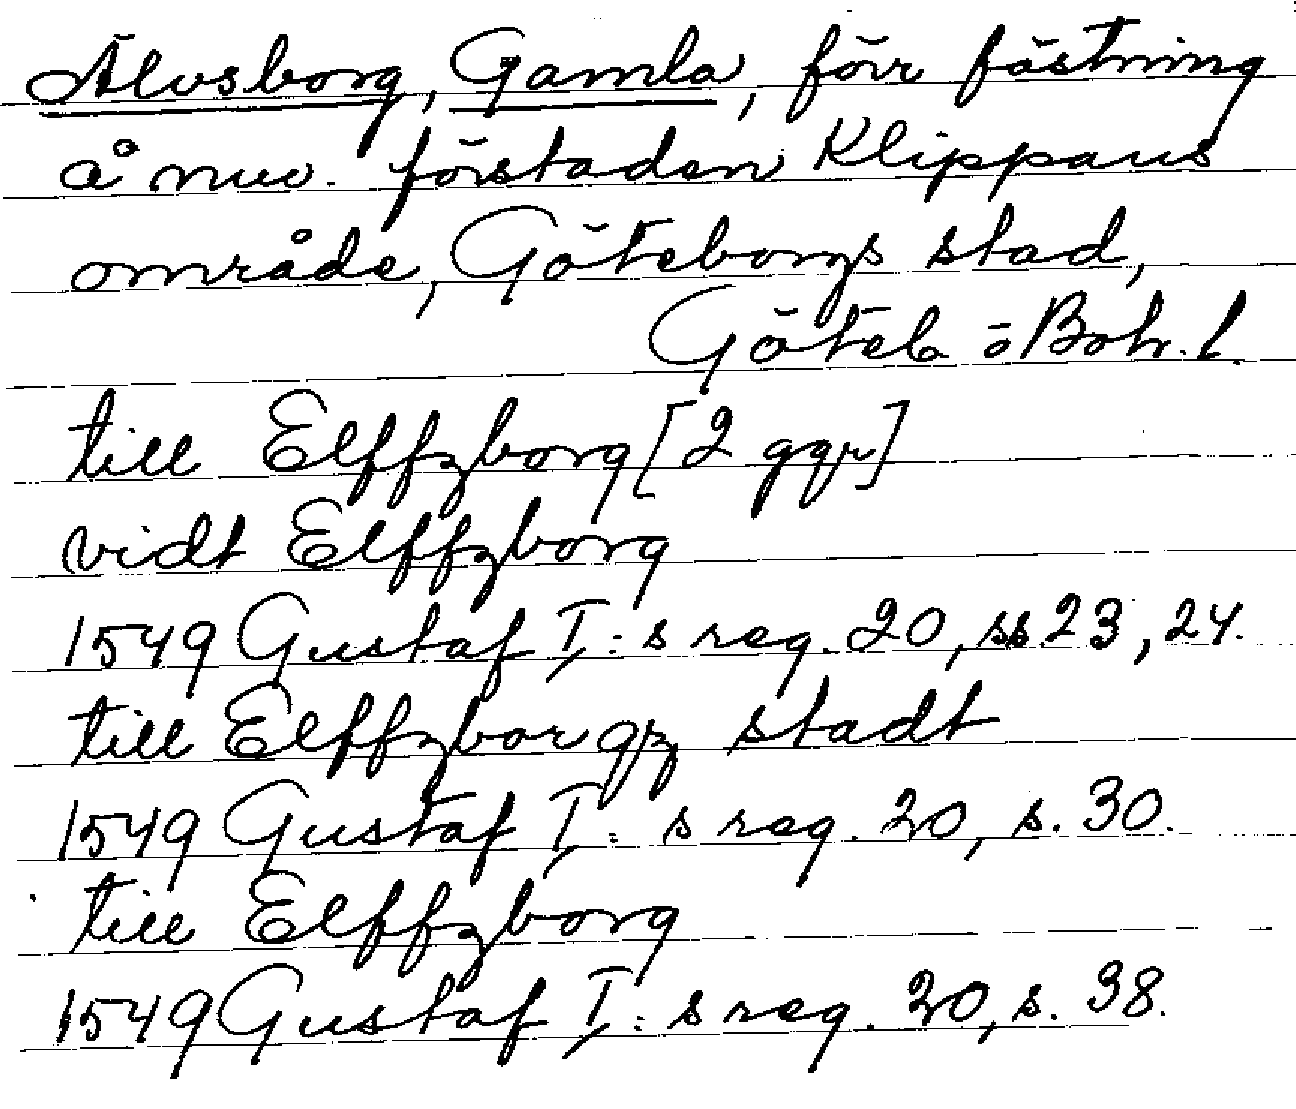 Älvsborg, Gamla, förr fästning
å nuv. förstaden Klippans
område, Göteborgs stad,
Göteb. o Boh. l.
till Elffzborg [2 ggr]
vidt Elffzborg
1549 Gustaf I:s reg. 20, ss 23, 24.
till Elffzborgz stadt
1549 Gustaf I:s reg. 20, s. 30.
till Elffzborg
1549 Gustaf I:s reg. 20, s. 38.